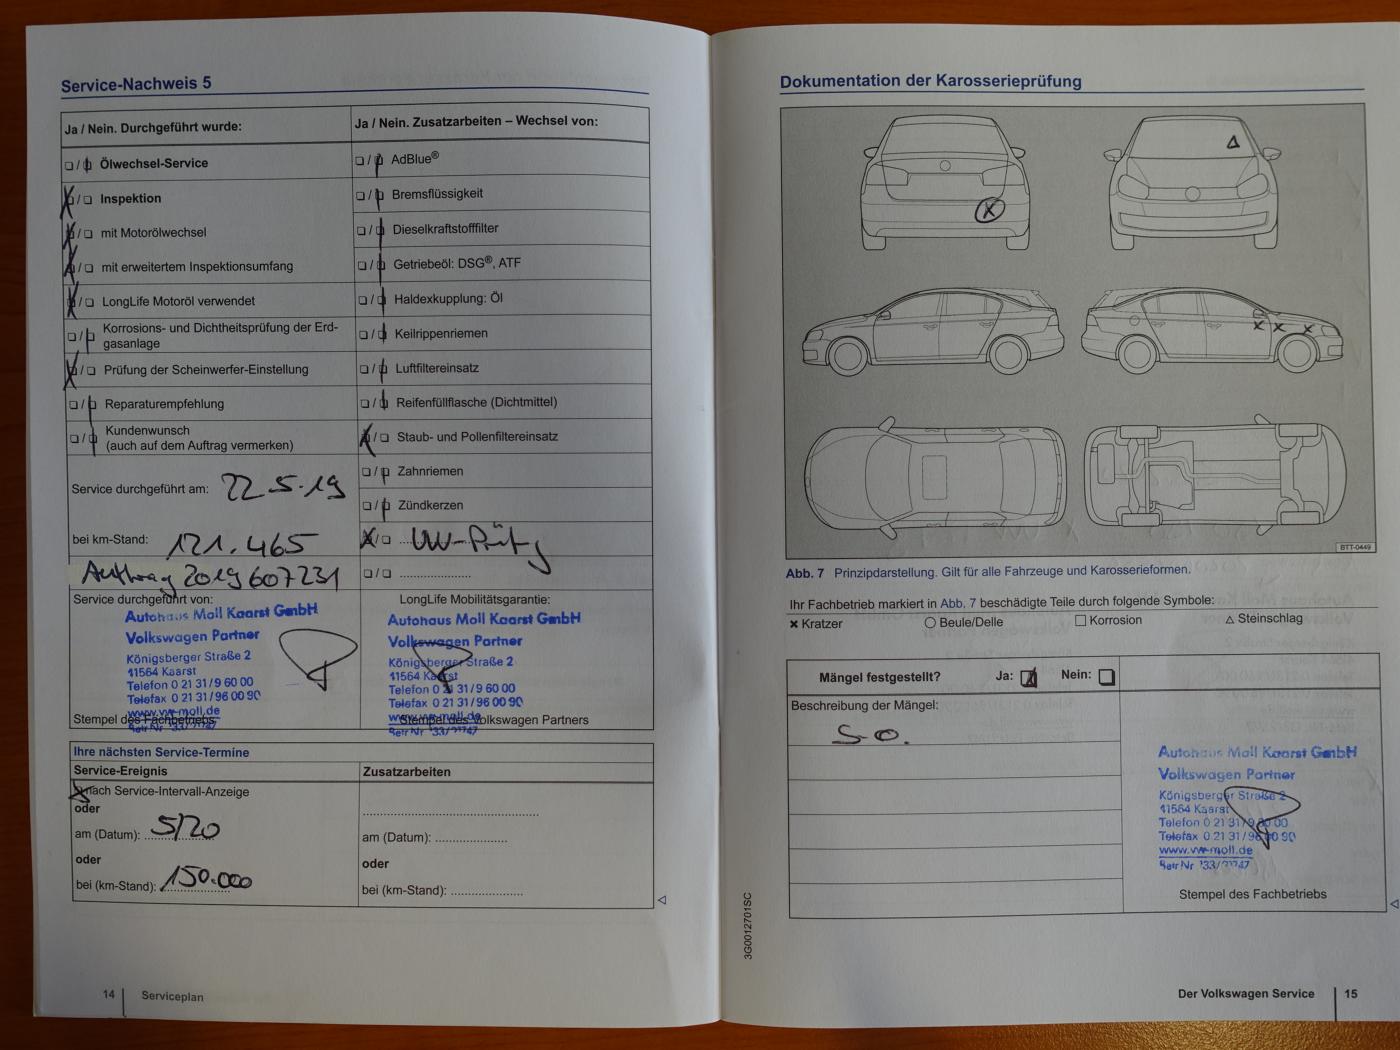 Service-Nachweis 5
Ja / Nein. Durchgeführt wurde:
❏ / ❏ Ölwechsel-Service
❏ / ❏ Inspektion
❏ / ❏ mit Motorölwechsel
❏ / ❏ mit erweitertem Inspektionsumfang
❏ / ❏ LongLife Motoröl verwendet
❏ / ❏ Korrosions- und Dichtheitsprüfung der Erd-
gasanlage
❏ / ❏ Prüfung der Scheinwerfer-Einstellung
❏ / ❏ Reparaturempfehlung
❏ / ❏ Kundenwunsch
(auch auf dem Auftrag vermerken)
Service durchgeführt am: 22.5.19
bei km-Stand: 121.465
Auftrag 2019607231
Ja / Nein. Zusatzarbeiten – Wechsel von:
❏ / ❏ AdBlue®
❏ / ❏ Bremsflüssigkeit
❏ / ❏ Dieselkraftstofffilter
❏ / ❏ Getriebeöl: DSG®, ATF
❏ / ❏ Haldexkupplung: Öl
❏ / ❏ Keilrippenriemen
❏ / ❏ Luftfiltereinsatz
❏ / ❏ Reifenfüllflasche (Dichtmittel)
❏ / ❏ Staub- und Pollenfiltereinsatz
❏ / ❏ Zahnriemen
❏ / ❏ Zündkerzen
❏ / ❏
❏ / ❏ ......................
Service durchgeführt von:
Autohaus Moll Kaarst GmbH
Volkswagen Partner
Königsberger Straße 2
41564 Kaarst
Telefon 0 21 31 / 9 60 00
Telefax 0 21 31 / 96 00 90
www.vw-moll.de
Betr Nr
Stempel des Fachbetriebs
LongLife Mobilitätsgarantie:
Autohaus Moll Kaarst GmbH
Volkswagen Partner
Königsberger Straße 2
41564 Kaarst
Telefon 0 21 31 / 9 60 00
Telefax 0 21 31 / 96 00 90
www.vw-moll.de
Betr Nr
Stempel des Volkswagen Partners
Ihre nächsten Service-Termine
Service-Ereignis
nach Service-Intervall-Anzeige
oder
am (Datum): 5/20
oder
bei (km-Stand): 150.000
Zusatzarbeiten
am (Datum): ..................
oder
bei (km-Stand): ..................
14 Serviceplan
Dokumentation der Karosserieprüfung
BTT-0449
Abb. 7 Prinzipdarstellung. Gilt für alle Fahrzeuge und Karosserieformen.
Ihr Fachbetrieb markiert in Abb. 7 beschädigte Teile durch folgende Symbole:
✖ Kratzer ○ Beule/Delle □ Korrosion △ Steinschlag
Mängel festgestellt? Ja: Nein:
Beschreibung der Mängel:
S.O.
Autohaus Moll Kaarst GmbH
Volkswagen Partner
Königsberger Straße 2
41564 Kaarst
Telefon 0 21 31 / 9 60 00
Telefax 0 21 31 / 96 00 90
www.vw-moll.de
Betr Nr
Stempel des Fachbetriebs
3G0012701SC
Der Volkswagen Service 15